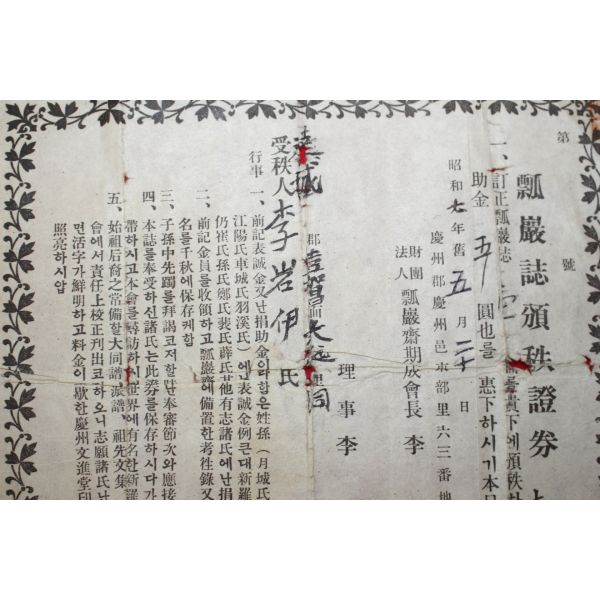 第 號
瓢巖誌頒秩證券
一、訂正瓢巖誌
助金 五 圓也를 惠下하시기本
昭和七年舊五月二十日
慶州郡慶州邑東部里六三番地
財團法人瓢巖齋期成會長 李
理事 李
達城郡
受秩人 李岩伊 氏
行事
一、前記表誠金又난捐助金이라함은姓孫(月城氏
江陽氏車城氏羽溪氏)에난表誠金例큰대新羅
仍崔氏孫氏鄭氏裴氏薛氏其他有志諸氏에난捐
二、前記金員를收領하고瓢巖齋에備置한考徃錄又
名를千秋에保存케함
三、子孫中先躅를拜謁코저할단奉審節次와應接
四、本誌를奉受하신諸氏는此券를保存하시다가
帶하시고本會를尋訪하시
世界에有名한新羅
五、始祖后裔之常備할大同譜派譜、祖先文集
會에서責任上校正刊出코하오니志願諸氏난
면活字가鮮明하고料金이歇한慶州文進堂印
照亮하시압